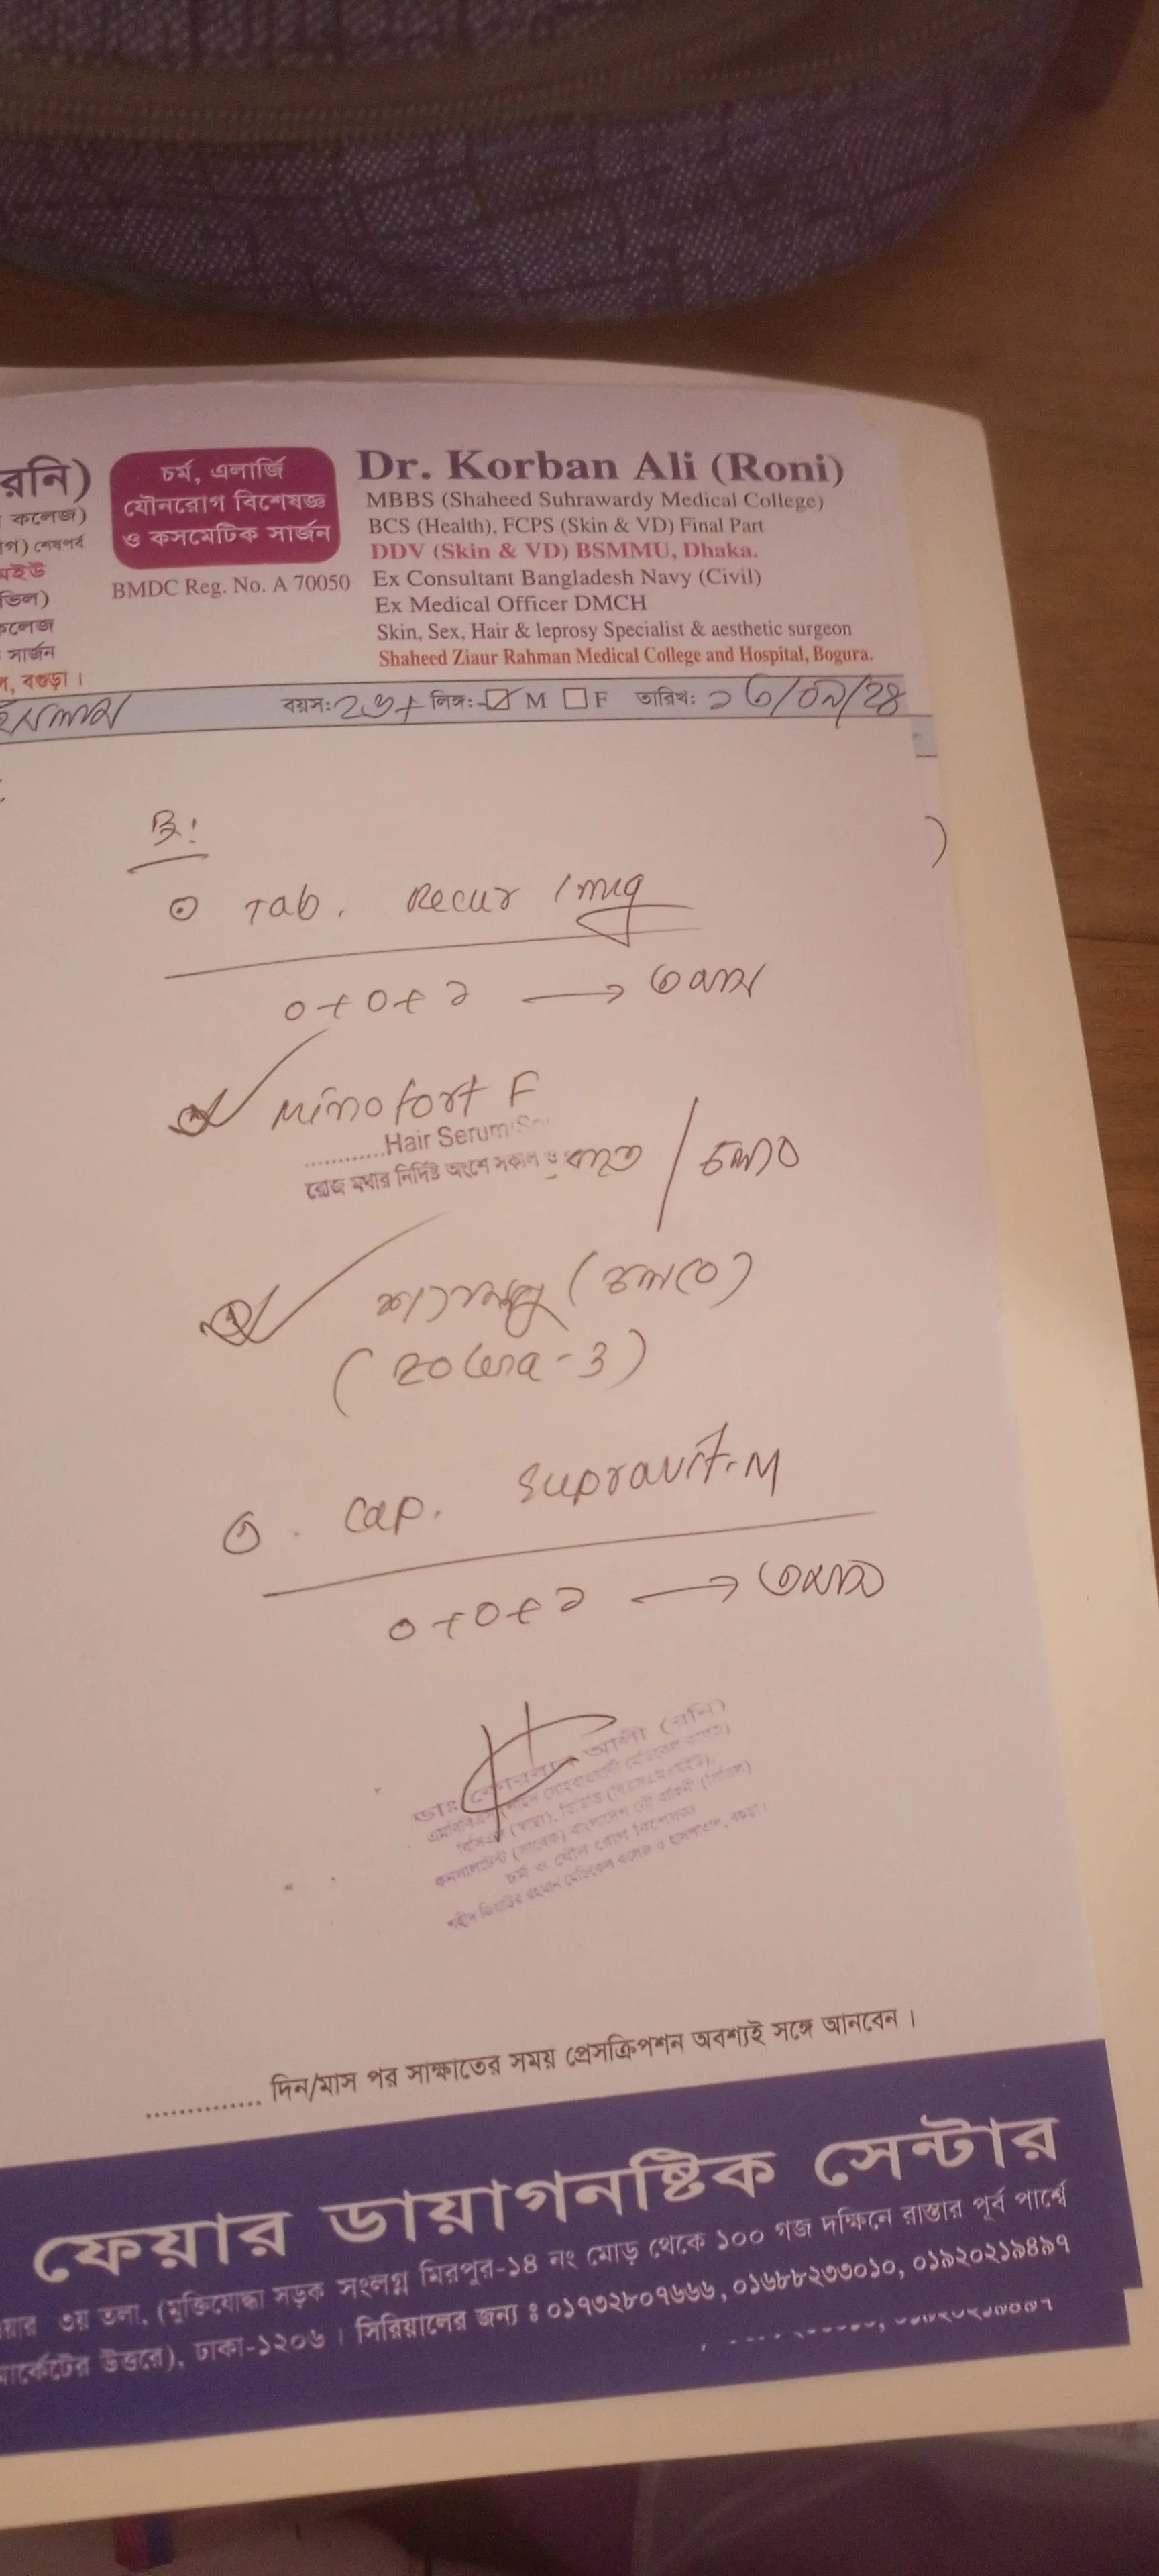 রনি)
কলেজ)
গ) শেষপর্ব
মইউ
ভিল)
কলেজ
সার্জন
ল, বগুড়া।
চর্ম, এলার্জি
যৌনরোগ বিশেষজ্ঞ
ও কসমেটিক সার্জন
BMDC Reg. No. A 70050
Dr. Korban Ali (Roni)
MBBS (Shaheed Suhrawardy Medical College)
BCS (Health), FCPS (Skin & VD) Final Part
DDV (Skin & VD) BSMMU, Dhaka.
Ex Consultant Bangladesh Navy (Civil)
Ex Medical Officer DMCH
Skin, Sex, Hair & leprosy Specialist & aesthetic surgeon
Shaheed Ziaur Rahman Medical College and Hospital, Bogura.
বয়স: লিঙ্গ: M F তারিখ:
Rx:
Tab. Recur 1mg
০+০+১ → ৩মাস
Minofort F
............Hair Serum
রোজ মথার নির্দিষ্ট অংশে সকাল ও রাতে / চলবে
শ্যাম্পু (চলবে)
Cap. Supravit-M
০+০+১ → ৩মাস
ডাঃ কোরবান আলী (রনি)
চর্ম ও যৌন রোগ বিশেষজ্ঞ
.............. দিন/মাস পর সাক্ষাতের সময় প্রেসক্রিপশন অবশ্যই সঙ্গে আনবেন।
ফেয়ার ডায়াগনষ্টিক সেন্টার
য়ার ৩য় তলা, (মুক্তিযোদ্ধা সড়ক সংলগ্ন মিরপুর-১৪ নং মোড় থেকে ১০০ গজ দক্ষিনে রাস্তার পূর্ব পার্শ্বে
মার্কেটের উত্তরে), ঢাকা-১২০৬। সিরিয়ালের জন্য ঃ ০১৭৩২৮০৭৬৬৬, ০১৬৮৮২৩৩০১০, ০১৯২০২১৯৪৯৭